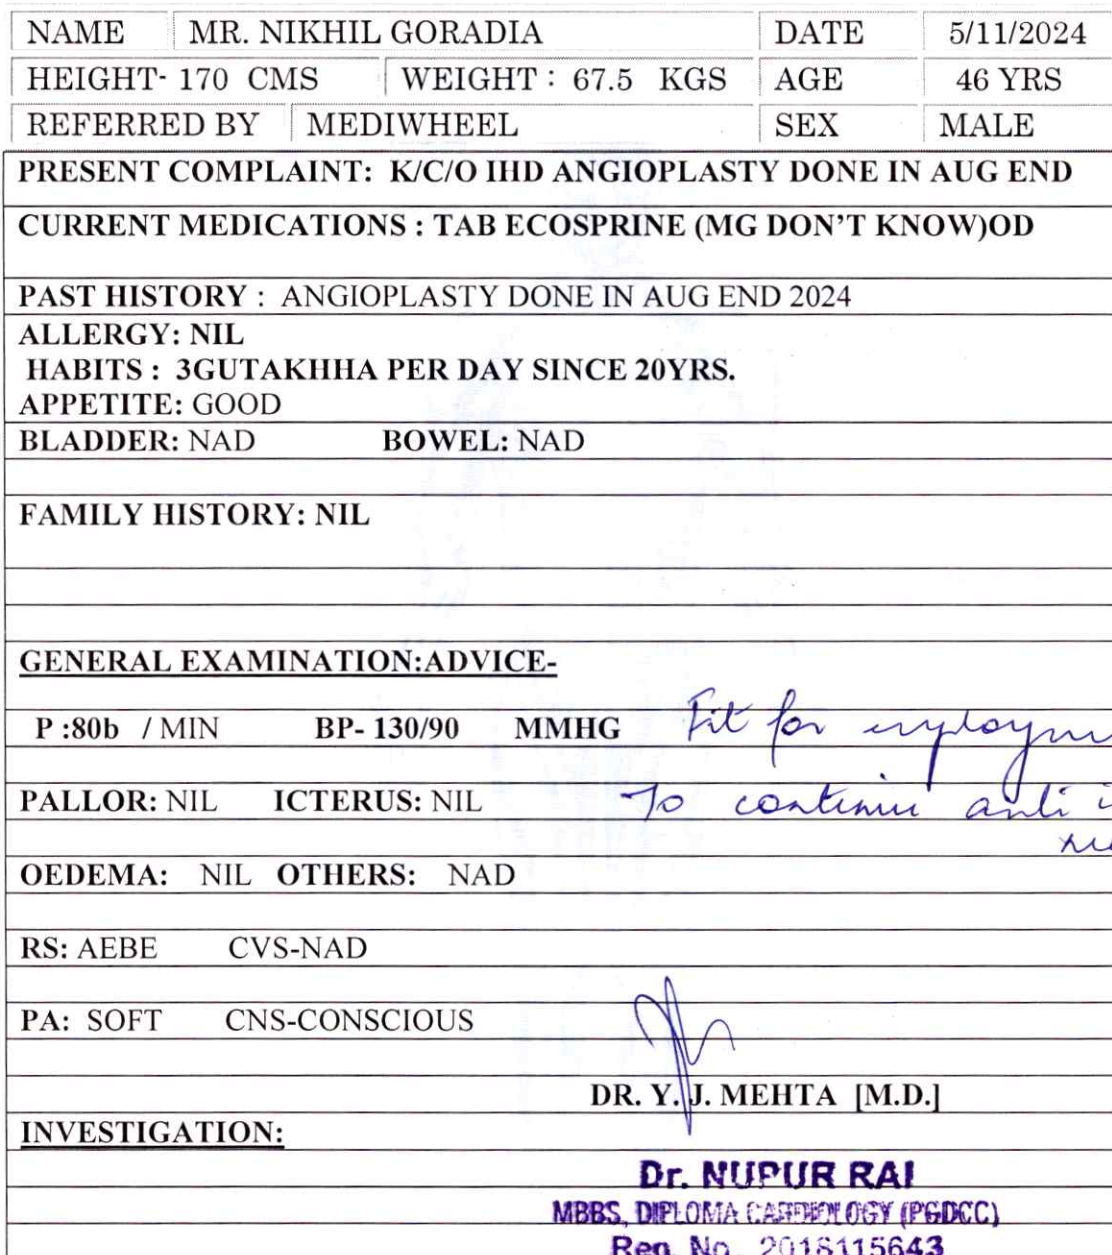 NAME MR. NIKHIL GORADIA DATE 5/11/2024
HEIGHT- 170 CMS WEIGHT : 67.5 KGS AGE 46 YRS
REFERRED BY MEDIWHEEL SEX MALE
PRESENT COMPLAINT: K/C/O IHD ANGIOPLASTY DONE IN AUG END
CURRENT MEDICATIONS : TAB ECOSPRINE (MG DON'T KNOW)OD
PAST HISTORY : ANGIOPLASTY DONE IN AUG END 2024
ALLERGY: NIL
HABITS : 3GUTAKHHA PER DAY SINCE 20YRS.
APPETITE: GOOD
BLADDER: NAD BOWEL: NAD
FAMILY HISTORY: NIL
GENERAL EXAMINATION:ADVICE-
P :80b / MIN BP- 130/90 MMHG Fit for
PALLOR: NIL ICTERUS: NIL To continue anti
OEDEMA: NIL OTHERS: NAD
RS: AEBE CVS-NAD
PA: SOFT CNS-CONSCIOUS
DR. Y. J. MEHTA [M.D.]
INVESTIGATION:
Dr. NUPUR RAI
MBBS, DIPLOMA CARDIOLOGY (PGDCC)
Reg. No. 2018115643